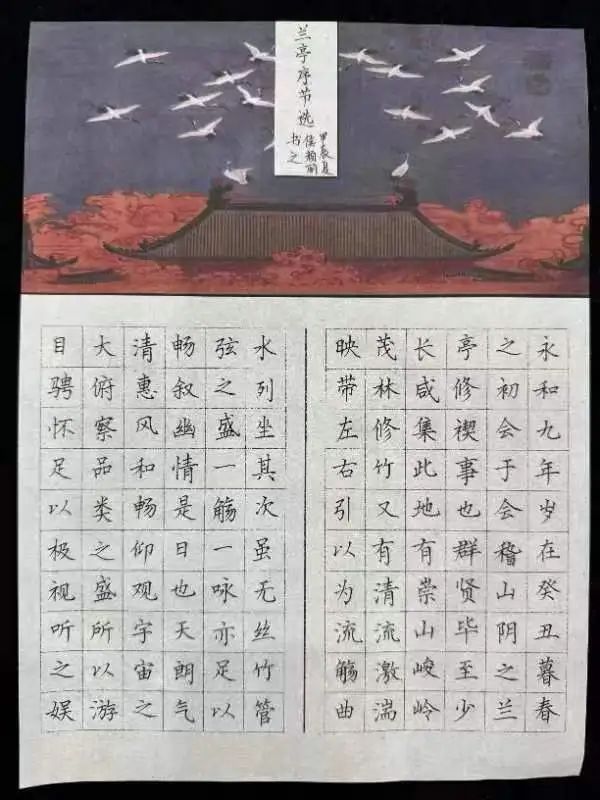 兰亭序节选
甲辰夏
书之
永和九年岁在癸丑暮春
之初会于会稽山阴之兰
亭修禊事也群贤毕至少
长咸集此地有崇山峻岭
茂林修竹又有清流激湍
映带左右引以为流觞曲
水列坐其次虽无丝竹管
弦之盛一觞一咏亦足以
畅叙幽情是日也天朗气
清惠风和畅仰观宇宙之
大俯察品类之盛所以游
目骋怀足以极视听之娱